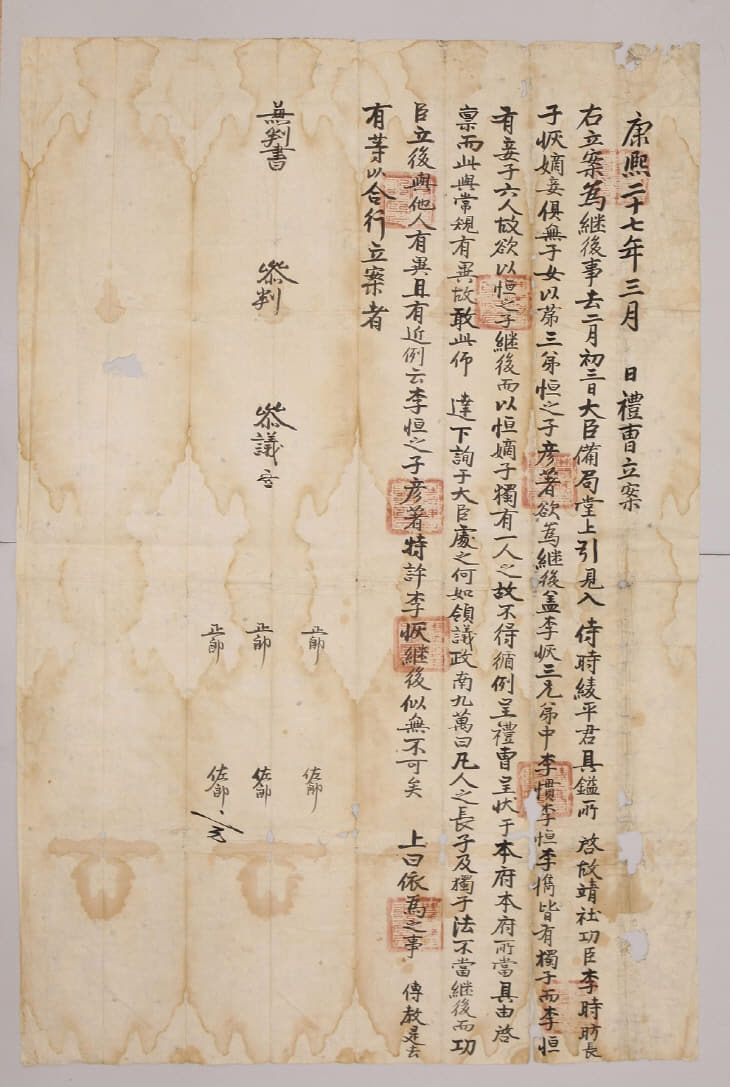 康熙二十七年三月 日禮曹立案
右立案爲繼後事去二月初三日大臣備局堂上引見入 侍時綾平君具鎰所 啓故靖社功臣李時昉長
子恢嫡妾俱無子女以第三弟恒之子彦著欲爲繼後盖李恢三兄弟中李慣李恒李㦕皆有獨子而李恒
有妾子六人故欲以恒之子繼後而以恒嫡子獨有一人之故不得循例呈禮曹呈狀于本府本府所當具由啓
禀而此與常規有異故敢此仰 達下詢于大臣處之何如領議政南九萬曰凡人之長子及獨子法不當繼後而功
臣立後與他人有異且有近例云李恒之子彦著特許李恢繼後似無不可矣 上曰依爲之事 傳敎是去
有等以合行立案者
兼判書 叅判 叅議
正郞 佐郞
正郞 佐郞
正郞 佐郞